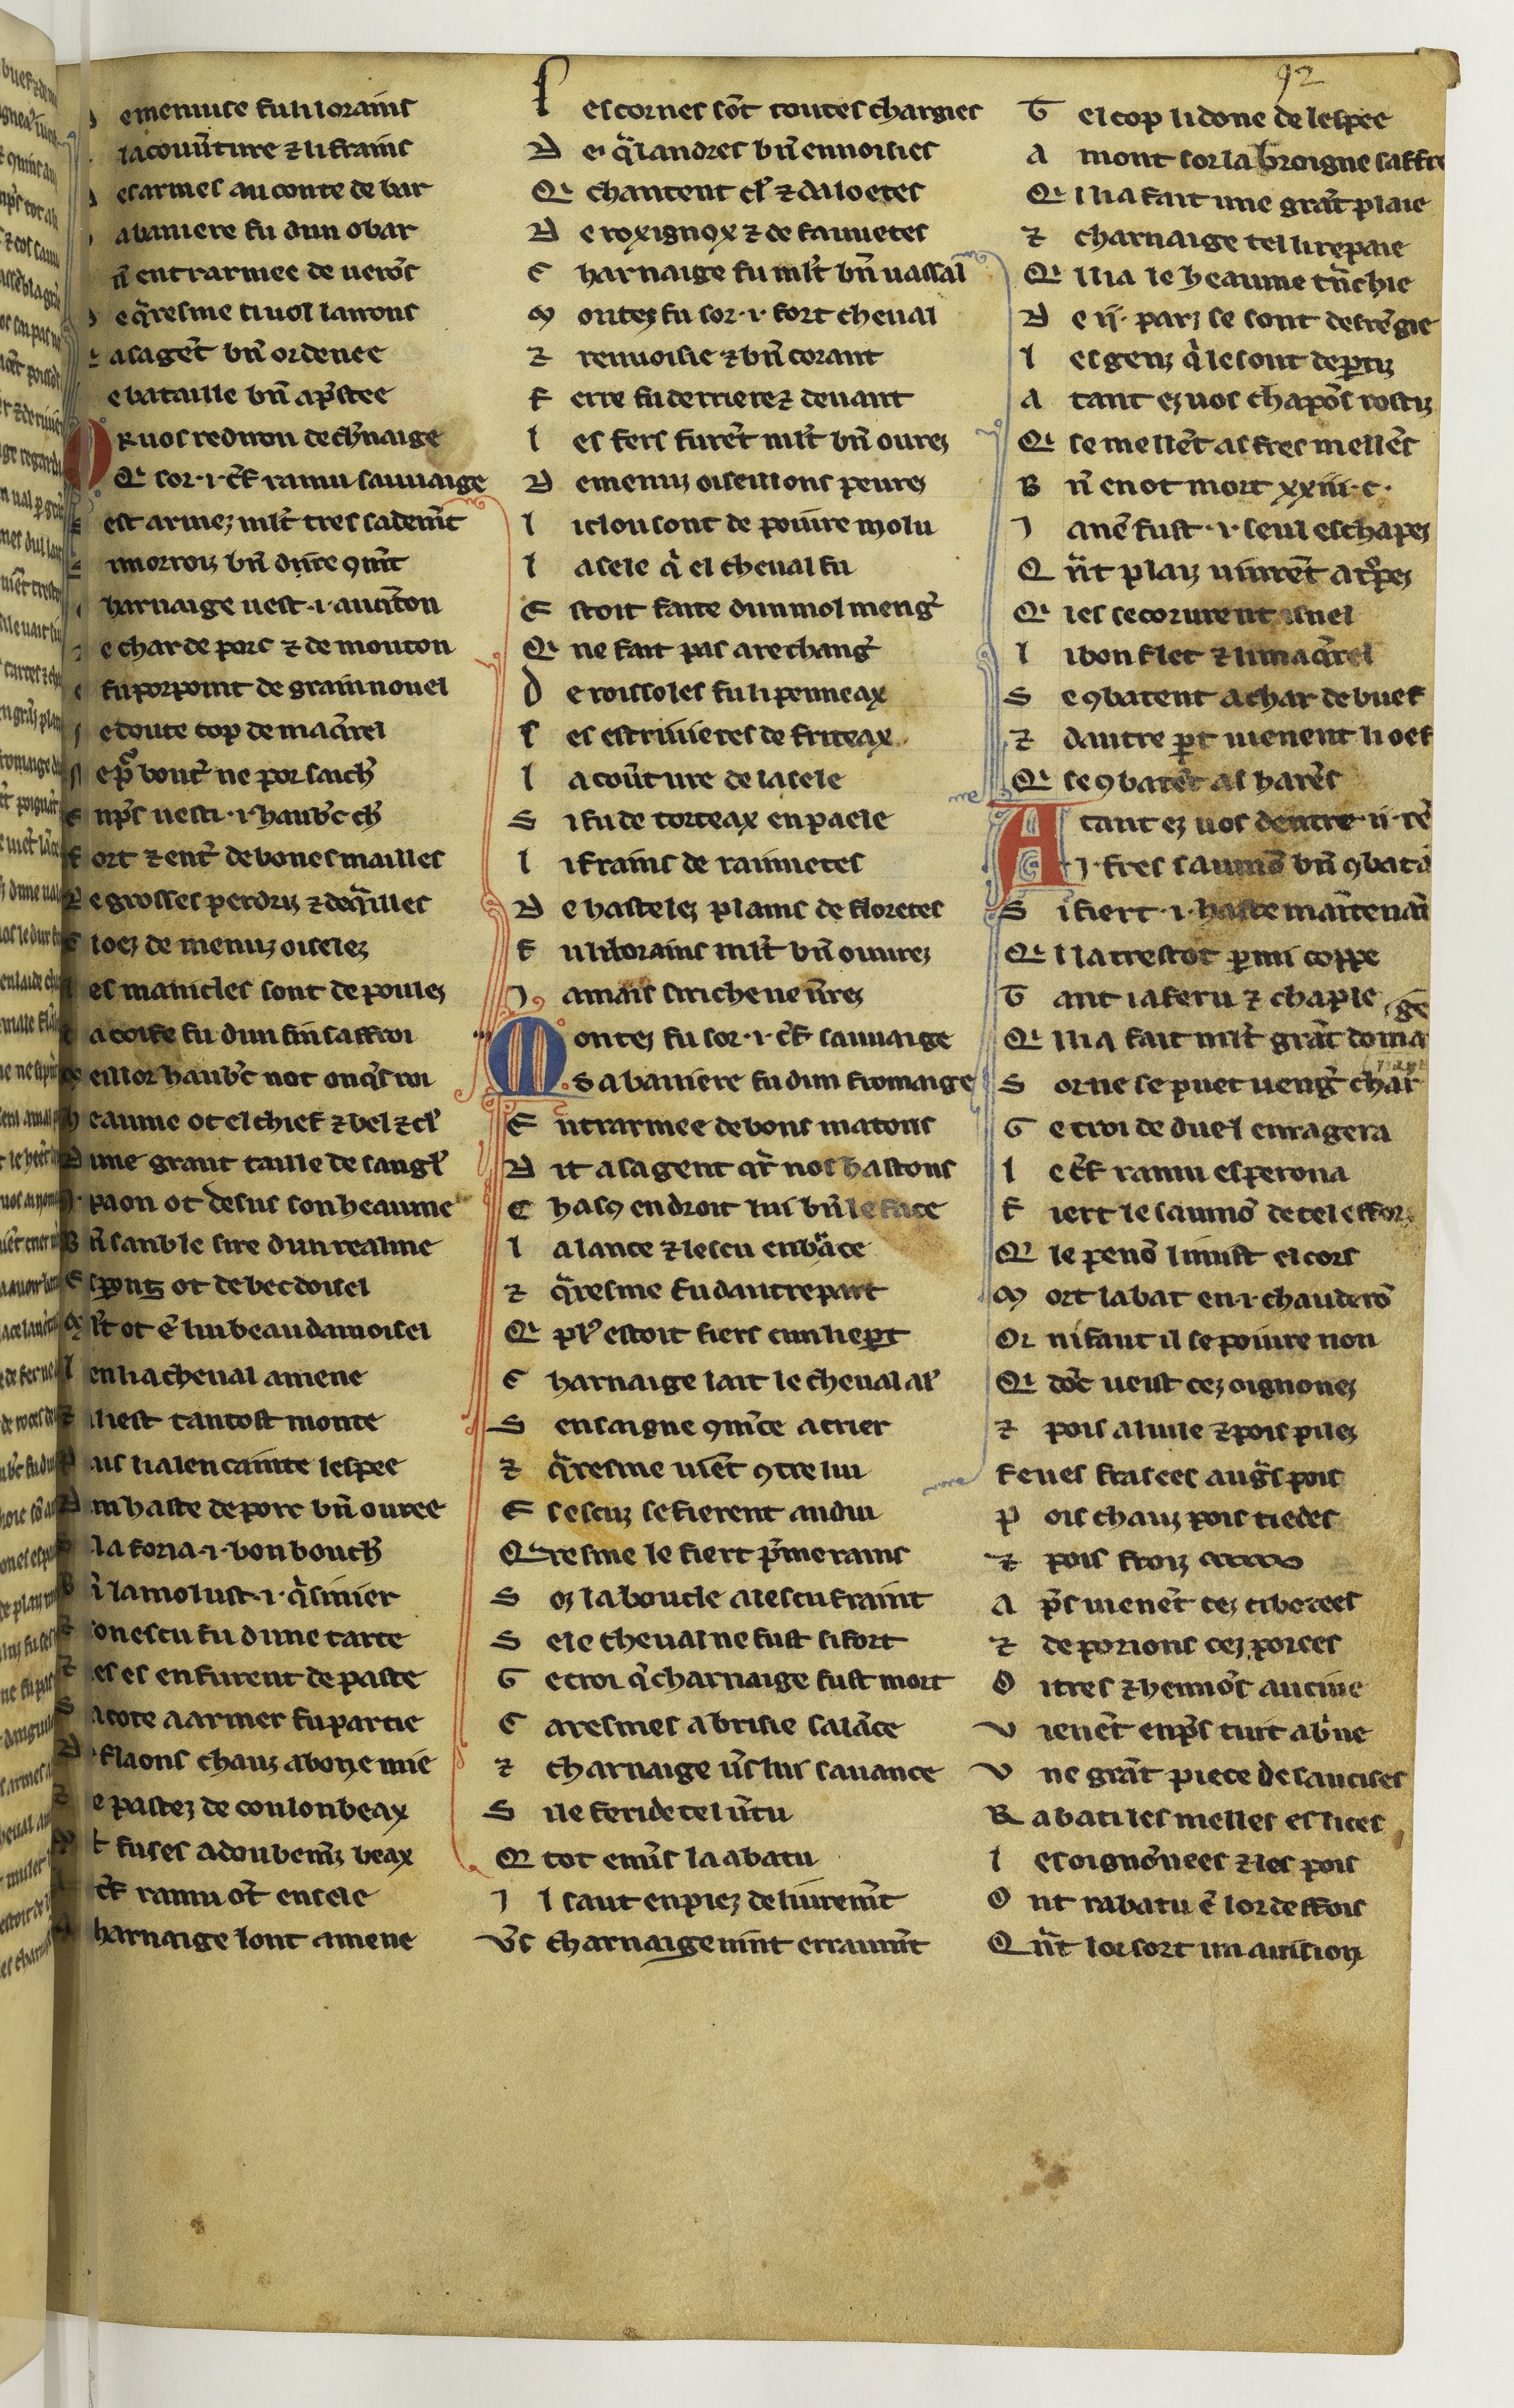 92
De menuise fu li lorains
La couv̄ture ⁊ li frains
Des armes au conte de bar
La baniere fu dun obar
Bn̄ entrarmee de uerōs
De q̄resme ci uol lairons
Qi a sa gēt bn̄ ordenee
De bataille bn̄ ap̄stee
OR uos rediron de ch̄naige
Qi sor .i. cerf ramu sauuaige
Sest armez ml̄t tres cadem̄t
Ia morroiz bn̄ dire 9m̄t
Charnaige uest .i. aucq̄ton
De char de porc ⁊ de mouton
fu porpoint de grain nouel
ne doute cop de maq̄rel
enp̄s uesti .i. haub̄c ch̄
Fort ⁊ ent̄ de bones mailles
De grosses perdriz ⁊ de q̄illes
Cloez de menuz oiselez
Les manicles sont de poulez
La coife fu dun fin saffroi
Meillor haub̄c not onq̄s roi
Heaume ot el chief ⁊ bel ⁊ cl̄
Dune grant taille de sangl̄
.I. paon ot desus son heaume
Bn̄ sanble sire dun reaume
Esp̄ons ot de bec doisel
Ml̄t ot ē lui beau damoisel
Len li a cheual amene
⁊ il iest tantost monte
Puis li a len cainte lespee
Dun haste de porc bn̄ ouree
Q la foria .i. bon bouch̄
Bn̄ lamolust .i. q̄sinier
Son escu fu dune tarte
⁊ les es en furent de paste
Sa cote a armer fu partie
De flaons chauz a bone mie
⁊ de pastez de coulonbeax
Ml̄t fu ses adoubem̄z beax
Le cerf ramu ōt ensele
A charnaige lont amene
Les cornes sōt toutes chargies
De q̄landres bn̄ enuoisies
Qi chantent cl̄ ⁊ daloetes
De roxignox ⁊ de fauuetes
Charnaige fu ml̄t bn̄ uassal
Montez fu sor .i. fort cheual
⁊ renuoisie ⁊ bn̄ corant
Ferre fu derriere ⁊ deuant
Les fers furēt ml̄t bn̄ ourez
De menuz oiseillons peurez
Li clou sont de poiure molu
La sele q̄ el cheual fu
Estoit faite dun mol menḡ
Qi ne fait pas a rechanḡ
De roissoles fu li penneax
Les estriuieres de friteax
La couv̄ture de la sele
Si fu de torteax en paele
Li frains de raimetes
De hastelez plains de floretes
Fu li lorains ml̄t bn̄ ouurez
Iamais si riche ne ūrez
Montez fu sor .i. cerf sauuaige
Sa baniere fu dun fromaige
Entrarmee de bons matons
Dit a sa gent q̄r nos hastons
Chasq̄ endroit lui bn̄ le face
La lance ⁊ lescu enbrace
⁊ q̄resme fu dautre part
Qi pl̄ estoit fiers cun liep̄t
Charnaige lait le cheual al̄
Sensaigne 9m̄ce a crier
⁊ q̄resme uiēt 9tre lui
Es escuz se fierent andui
Qresme le fiert p̄merains
Soz la boucle a lescu fraint
Se le cheual ne fust si fort
Ge croi q̄ charnaige fust mort
Caresmes a brisie sa lāce
⁊ charnaige ūs lui sauance
Si le feri de tel ūtu
Qi tot enūs la abatu
Il saut en piez deliurem̄t
Vs̄ charnaige uint erraum̄t
Tel cop li done de lespee
Amont sor la broigne saffre
Qi lli a fait une grāt plaie
⁊ charnaige tel li repaie
Qi lli a le heaume tn̄chie
De .ii. parz se sont desrēgie
Les genz q̄ le sont dep̄tiz
Atant ez uos chapōs rostiz
Qi se mellēt as fres mellēs
Bn̄ en ot mort xxiii .c.
Ia nē fust .i. seul eschapez
Qn̄t plaiz uinrēt at̄pez
Qi les secorurent isnel
Li bon flet ⁊ li maq̄rel
Se 9batent a char de buef
⁊ dautre p̄t uienent li oef
Qi se 9batēt as harēs
Atant ez uos dentre .ii. rēs
.I. fres saumō bn̄ 9batā
Si fiert .i. haste maītenāt
Qi lla trestot p̄mi coppe
Tant ia feru ⁊ chaple
Qi lli a fait ml̄t grāt domage
Sor ne se puet uenḡ charnage
Ge croi de duel enragera
Le cerf ramu esperona
Fiert le saumō de tel effors
Qi le penō li mist el cors
Mort labat en .i. chauderō
Or ni faut il se poiure non
Qi dōc ueist cez oignonez
⁊ pois a luile ⁊ pois pilez
Feues frasees augs̄ pois
Pois chauz pois tiedes
⁊ pois froiz
Ap̄s uienēt cez ciboees
⁊ de porions cez porees
Oitres ⁊ henōs auciue
Vienēt enp̄s tuit a brue
Vne grāt piece de saucises
R abati les melles es lices
Les oignōnees ⁊ les pois
Ont rabatu ē lor deffois
Qn̄t lor sort un auision